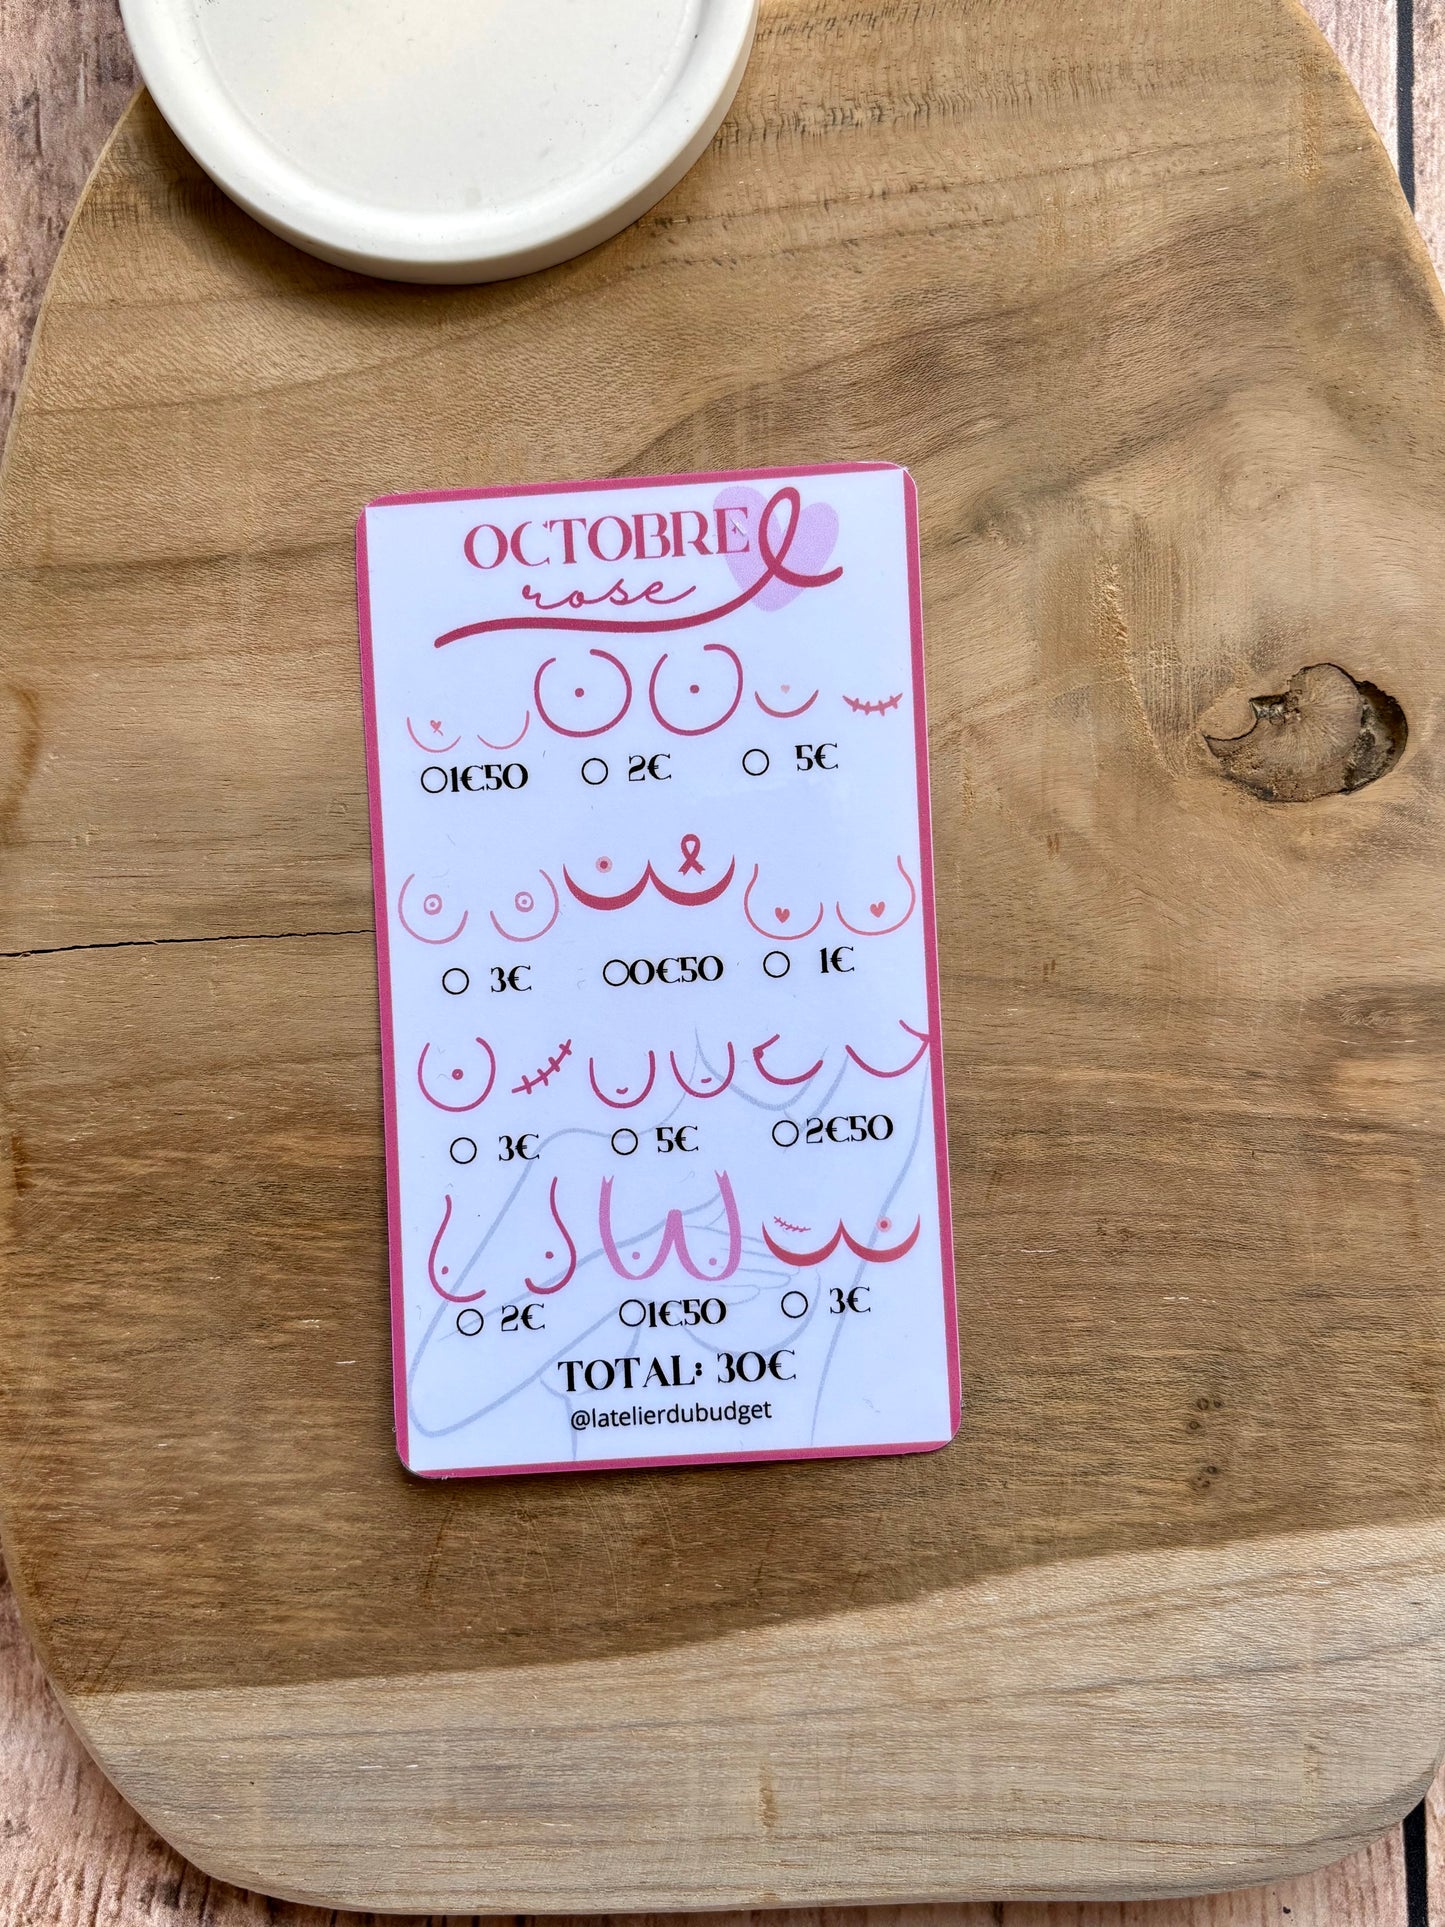 OCTOBRE
rose
1€50 2€ 5€
3€ 0€50 1€
3€ 5€ 2€50
2€ 1€50 3€
TOTAL: 30€
@latelierdubudget